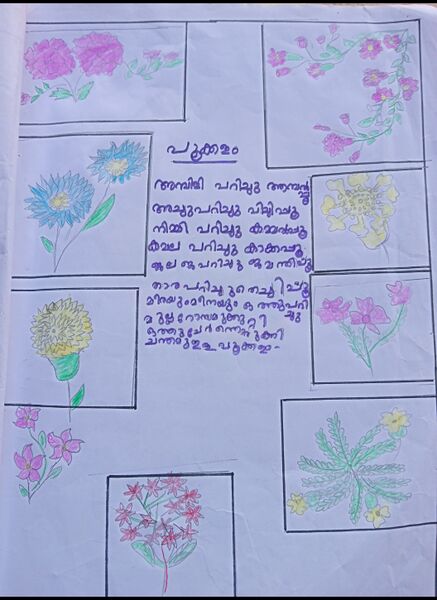 പൂക്കളം
അമ്പിളി പറിച്ചു ആമ്പൽപ്പൂ
അച്ചു പറിച്ചു പിച്ചിപ്പൂ
നിമ്മി പറിച്ചു കമ്മൽപ്പൂ
കമല പറിച്ചു കാക്കപ്പൂ
ജലജ പറിച്ചു ജമന്തിപ്പൂ
താര പറിച്ചു തെച്ചിപ്പൂ
മീനയും ഒത്തു പറിച്ചു
മുല്ല റോസ മുക്കുറ്റി
ഒത്തു ചേർന്നൊരുക്കി
ചന്തമുള്ള പൂക്കളം